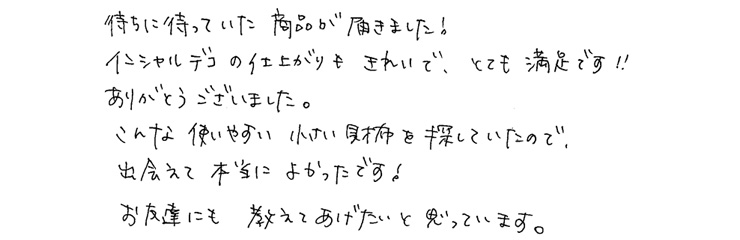 待ちに待っていた 商品が 届きました!
インシャルデコの仕上がりも きれいで、とても 満足です!!
ありがとうございました。
こんな 使いやすい 小さい財布を探していたので、
出会えて 本当に よかったです!
お友達にも 教えてあげたいと 思っています。